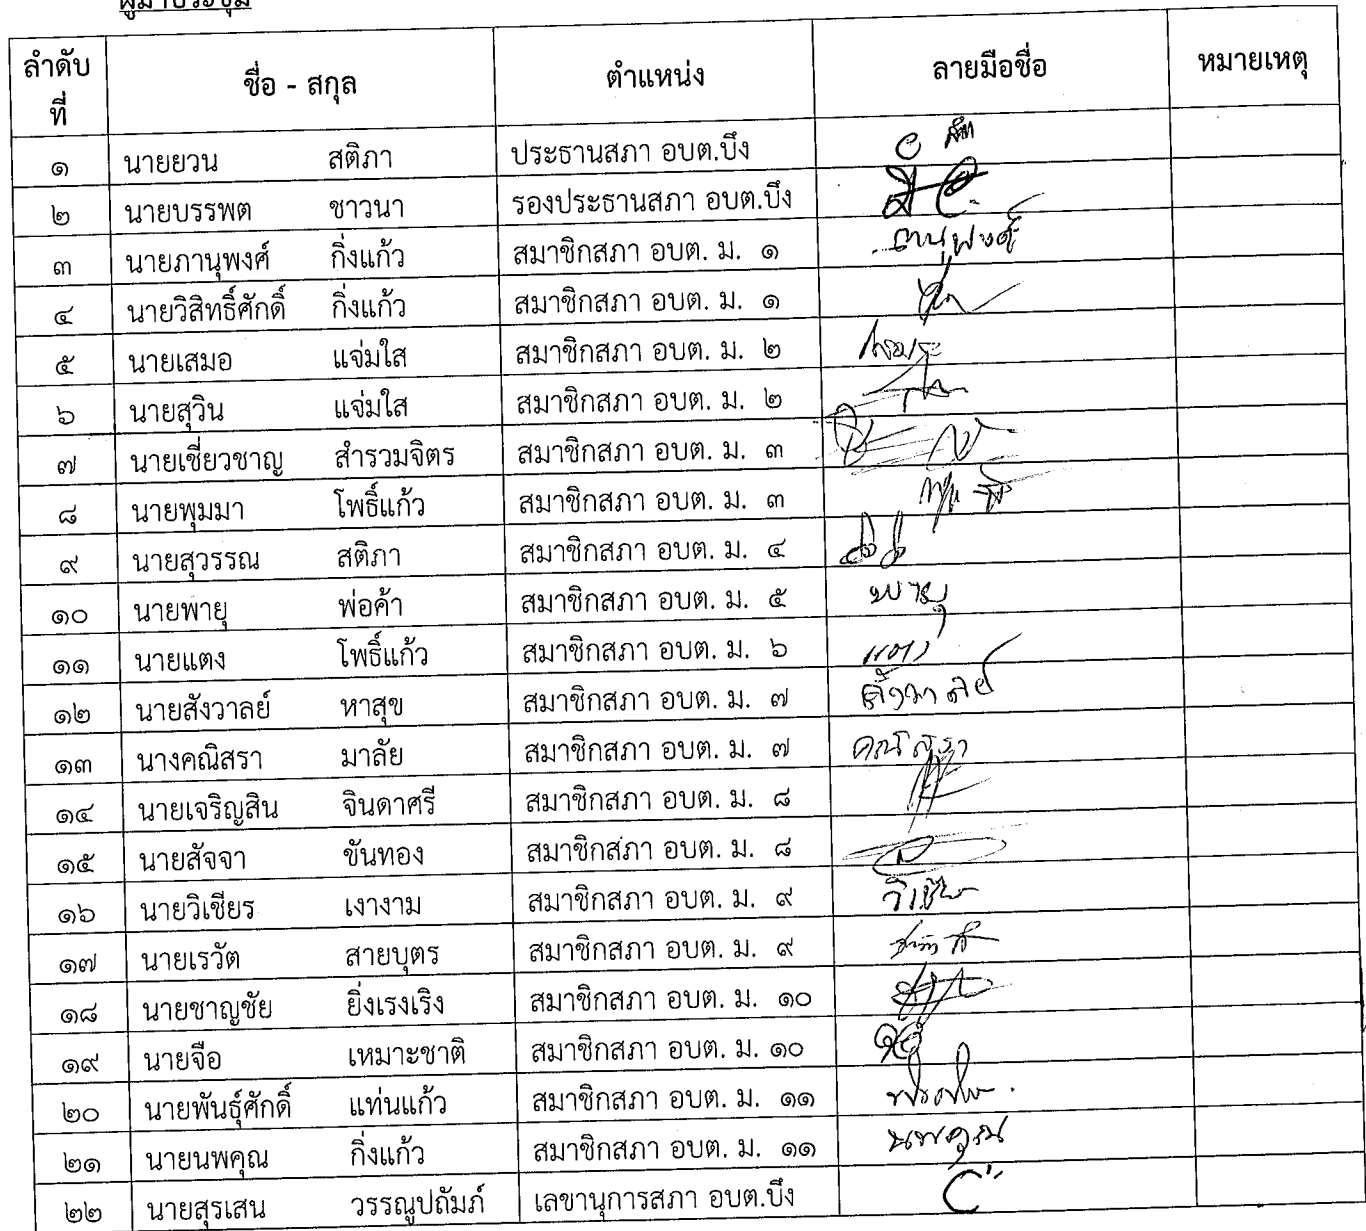 ผู้มาประชุม
ลำดับ
ที่ ชื่อ - สกุล ตำแหน่ง ลายมือชื่อ หมายเหตุ
๑ นายยวน สติภา ประธานสภา อบต.บึง
๒ นายบรรพต ชาวนา รองประธานสภา อบต.บึง
๓ นายภานุพงศ์ กิ่งแก้ว สมาชิกสภา อบต. ม. ๑ ภานุพงศ์
๔ นายวิสิทธิ์ศักดิ์ กิ่งแก้ว สมาชิกสภา อบต. ม. ๑
๕ นายเสมอ แจ่มใส สมาชิกสภา อบต. ม. ๒
๖ นายสุวิน แจ่มใส สมาชิกสภา อบต. ม. ๒
๗ นายเชี่ยวชาญ สำรวมจิตร สมาชิกสภา อบต. ม. ๓
๘ นายพุมมา โพธิ์แก้ว สมาชิกสภา อบต. ม. ๓
๙ นายสุวรรณ สติภา สมาชิกสภา อบต. ม. ๔
๑๐ นายพายุ พ่อค้า สมาชิกสภา อบต. ม. ๕ พายุ
๑๑ นายแตง โพธิ์แก้ว สมาชิกสภา อบต. ม. ๖ แตง
๑๒ นายสังวาลย์ หาสุข สมาชิกสภา อบต. ม. ๗ สังวาลย์
๑๓ นางคณิสรา มาลัย สมาชิกสภา อบต. ม. ๗ คณิสรา
๑๔ นายเจริญสิน จินดาศรี สมาชิกสภา อบต. ม. ๘
๑๕ นายสัจจา ขันทอง สมาชิกสภา อบต. ม. ๘
๑๖ นายวิเชียร เงางาม สมาชิกสภา อบต. ม. ๙ วิเชียร
๑๗ นายเรวัต สายบุตร สมาชิกสภา อบต. ม. ๙
๑๘ นายชาญชัย ยิ่งเรงเริง สมาชิกสภา อบต. ม. ๑๐
๑๙ นายจือ เหมาะชาติ สมาชิกสภา อบต. ม. ๑๐
๒๐ นายพันธุ์ศักดิ์ แท่นแก้ว สมาชิกสภา อบต. ม. ๑๑
๒๑ นายนพคุณ กิ่งแก้ว สมาชิกสภา อบต. ม. ๑๑ นพคุณ
๒๒ นายสุรเสน วรรณูปถัมภ์ เลขานุการสภา อบต.บึง